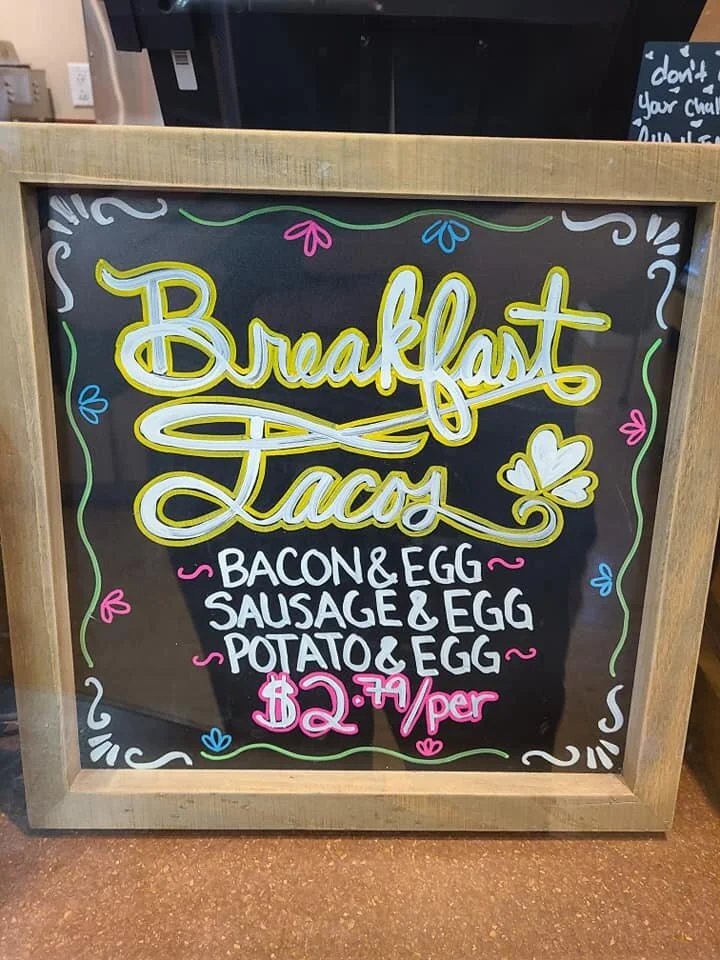 don't
your
Breakfast
Tacos
BACON & EGG
SAUSAGE & EGG
POTATO & EGG
$2.79/per